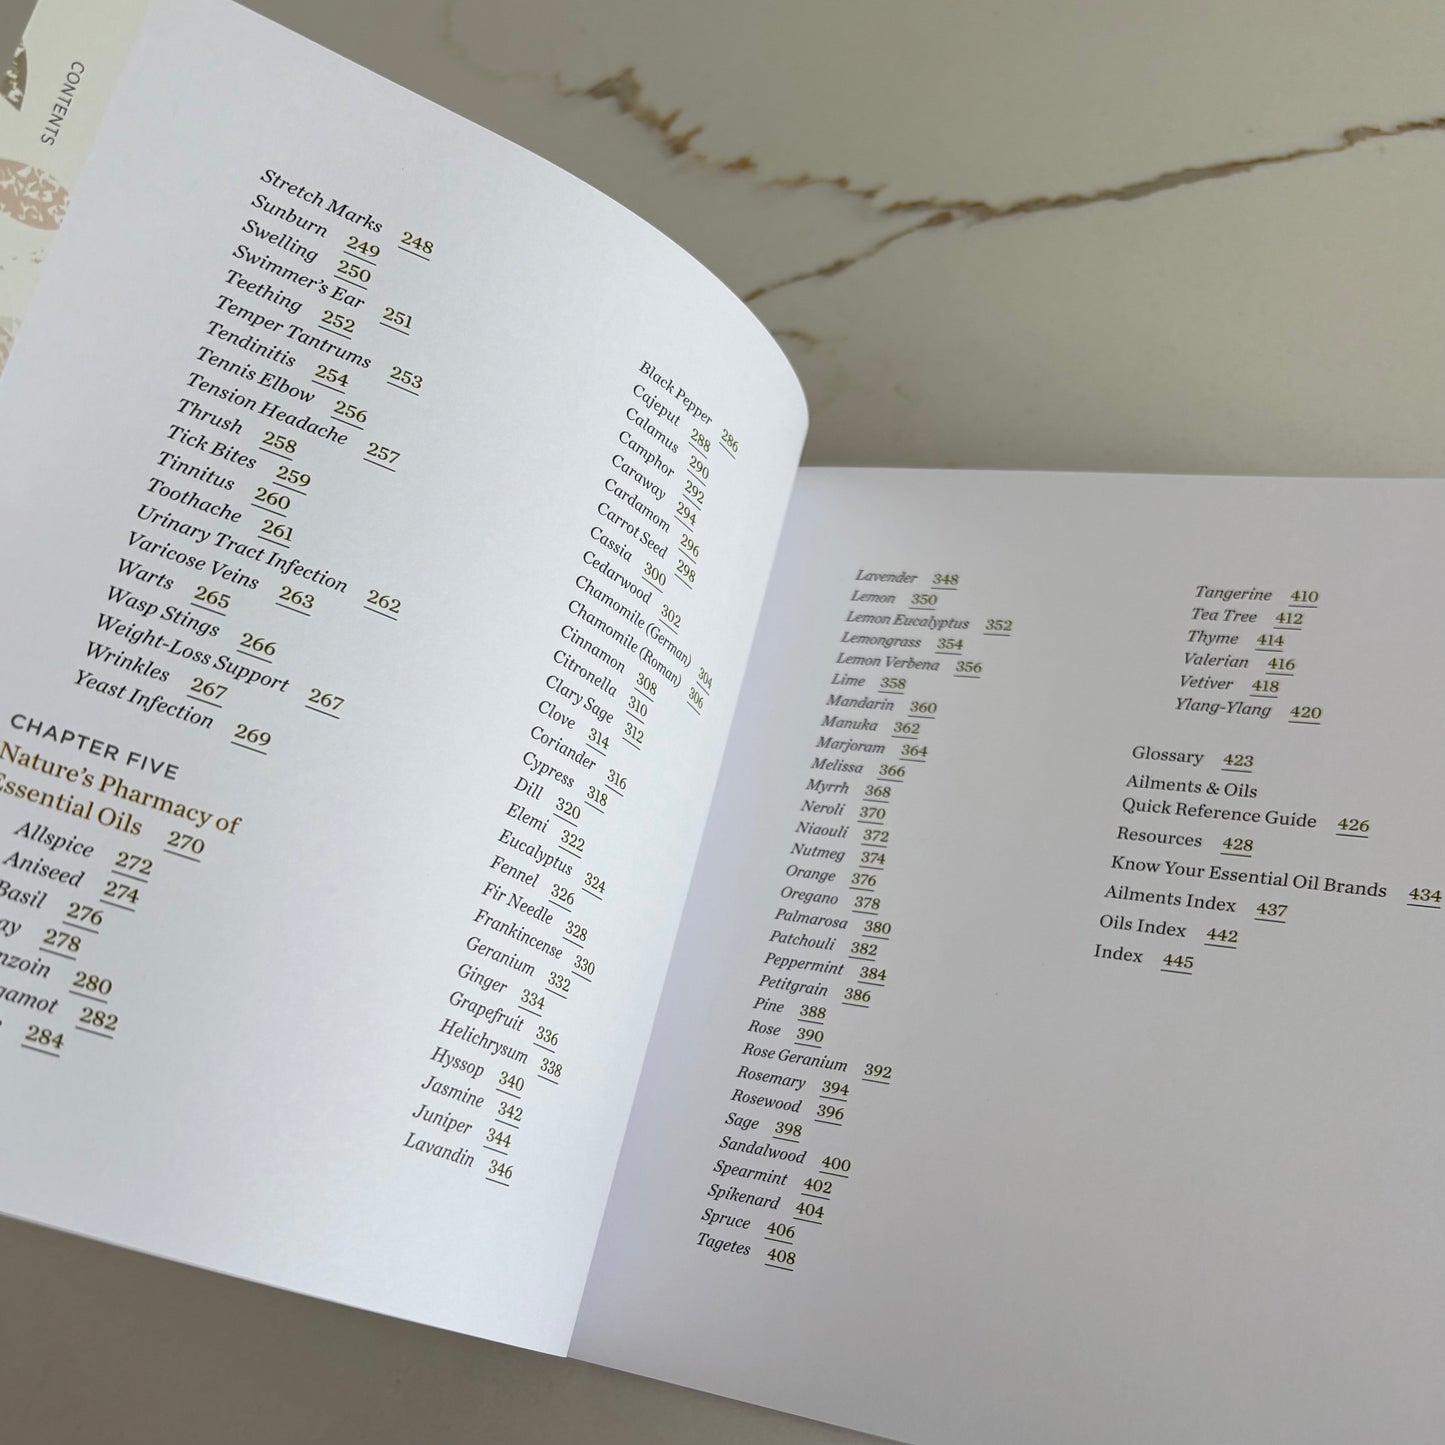 CONTENTS
Stretch Marks 248
Sunburn 249
Swelling 250
Swimmer's Ear 251
Teething 252
Temper Tantrums 253
Tendinitis 254
Tennis Elbow 256
Tension Headache 257
Thrush 258
Tick Bites 259
Tinnitus 260
Toothache 261
Urinary Tract Infection 262
Varicose Veins 263
Warts 265
Wasp Stings 266
Weight-Loss Support 267
Wrinkles 267
Yeast Infection 269
CHAPTER FIVE
Nature's Pharmacy of
Essential Oils 270
Allspice 272
Aniseed 274
Basil 276
278
280
282
284
Black Pepper 286
Cajeput 288
Calamus 290
Camphor 292
Caraway 294
Cardamom 296
Carrot Seed 298
Cassia 300
Cedarwood 302
Chamomile (German) 304
Chamomile (Roman) 306
Cinnamon 308
Citronella 310
Clary Sage 312
Clove 314
Coriander 316
Cypress 318
Dill 320
Elemi 322
Eucalyptus 324
Fennel 326
Fir Needle 328
Frankincense 330
Geranium 332
Ginger 334
Grapefruit 336
Helichrysum 338
Hyssop 340
Jasmine 342
Juniper 344
Lavandin 346
Lavender 348
Lemon 350
Lemon Eucalyptus 352
Lemongrass 354
Lemon Verbena 356
Lime 358
Mandarin 360
Manuka 362
Marjoram 364
Melissa 366
Myrrh 368
Neroli 370
Niaouli 372
Nutmeg 374
Orange 376
Oregano 378
Palmarosa 380
Patchouli 382
Peppermint 384
Petitgrain 386
Pine 388
Rose 390
Rose Geranium 392
Rosemary 394
Rosewood 396
Sage 398
Sandalwood 400
Spearmint 402
Spikenard 404
Spruce 406
Tagetes 408
Tangerine 410
Tea Tree 412
Thyme 414
Valerian 416
Vetiver 418
Ylang-Ylang 420
Glossary 423
Ailments & Oils
Quick Reference Guide 426
Resources 428
Know Your Essential Oil Brands 434
Ailments Index 437
Oils Index 442
Index 445